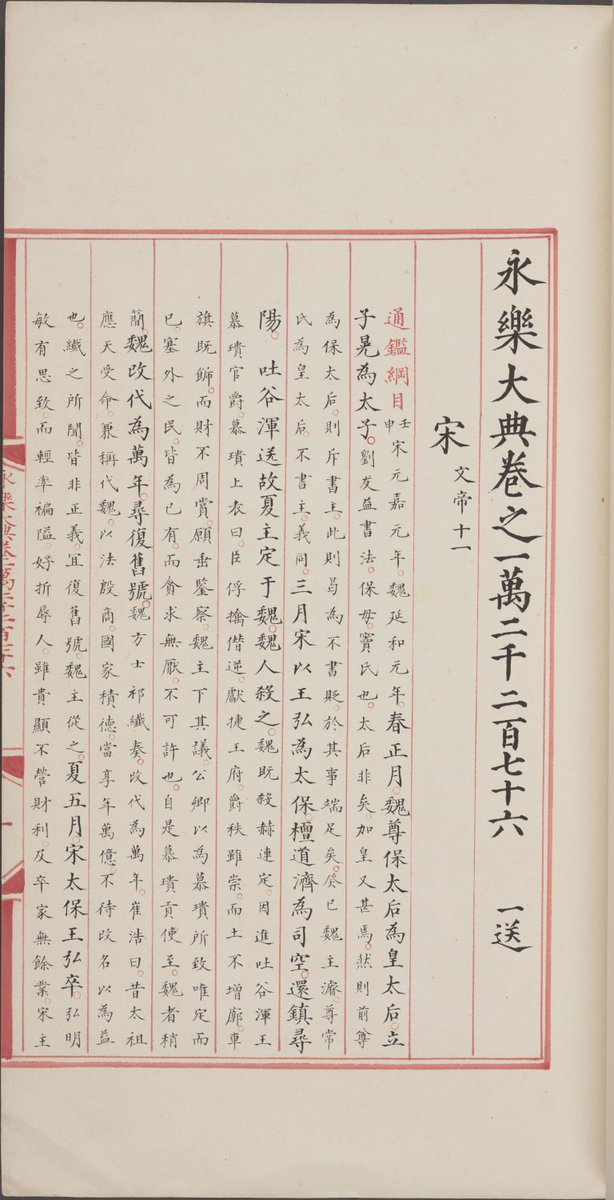 永樂大典卷之一萬二千二百七十六 一送
宋 文帝十一
通鑑綱目 壬申 宋元嘉元年。魏延和元年。春正月。魏尊保太后為皇太后。立
子晃為太子。劉友益書法。保母。竇氏也。太后非矣。加皇又甚焉。然則前尊
為保太后。則斥書主。此則曷為不書貶。於其事端足矣。癸巳魏主濬。尊常
氏為皇太后。不書主。義同。三月宋以王弘為太保。檀道濟為司空。還鎮尋
陽。吐谷渾送故夏主定于魏。魏人殺之。魏既殺赫連定。因進吐谷渾王
慕璝官爵。慕璝上表曰。臣俘擒僭逆。獻捷王府。爵秩雖崇。而土不增廓。車
旗既飾。而財不周賞。願垂鑒察。魏主下其議。公卿以為慕璝所致唯定而
已。塞外之民。皆為己有。而貪求無厭。不可許也。自是慕璝貢使至。魏者稍
簡。魏改代為萬年。尋復舊號。魏方士祁纖奏。改代為萬年。崔浩曰。昔太祖
應天受命。兼稱代魏。以法殷商。國家積德。當享年萬億。不待改名以為益
也。纖之所聞。皆非正義。宜復舊號。魏主從之。夏五月。宋太保王弘卒。弘明
敏有思致。而輕率褊隘。好折辱人。雖貴顯不營財利。及卒家無餘業。宋主
永樂大典卷一萬二千二百七十六
一